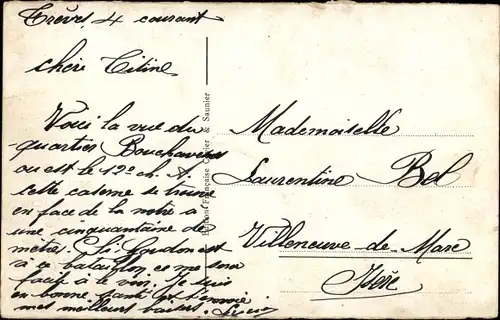 Trèves, 4 courant
chère Titine
Voici la vue du
quartier Bouchavesnes
ou est le 12e ch. A.
cette caserne se trouve
en face de la notre a
une cinquantaine de
mètre. Si Goudon est
à ce bataillon ce me sera
facile à le voir. Je suis
en bonne santé et t'envoie
mes meilleurs baisers.
Mademoiselle
Laurentine Bel
Villeneuve-de-Marc
Isère